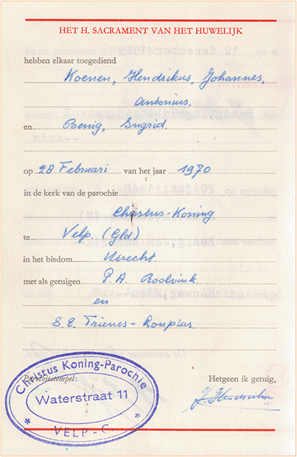 HET H. SACRAMENT VAN HET HUWELIJK
hebben elkaar toegediend
Koenen, Hendrikus, Johannes,
Antonius,
en Benig, Ingrid.
op 28 Februari van het jaar 1970
in de kerk van de parochie
Christus-Koning
te Velp. (Gld)
in het bisdom Utrecht
met als getuigen P.A. Roelvink
en
S.E. Frienes-Loupias.
Parochiestempel: Hetgeen ik getuig,
Christus Koning-Parochie
Waterstraat 11
* VELP-G. *